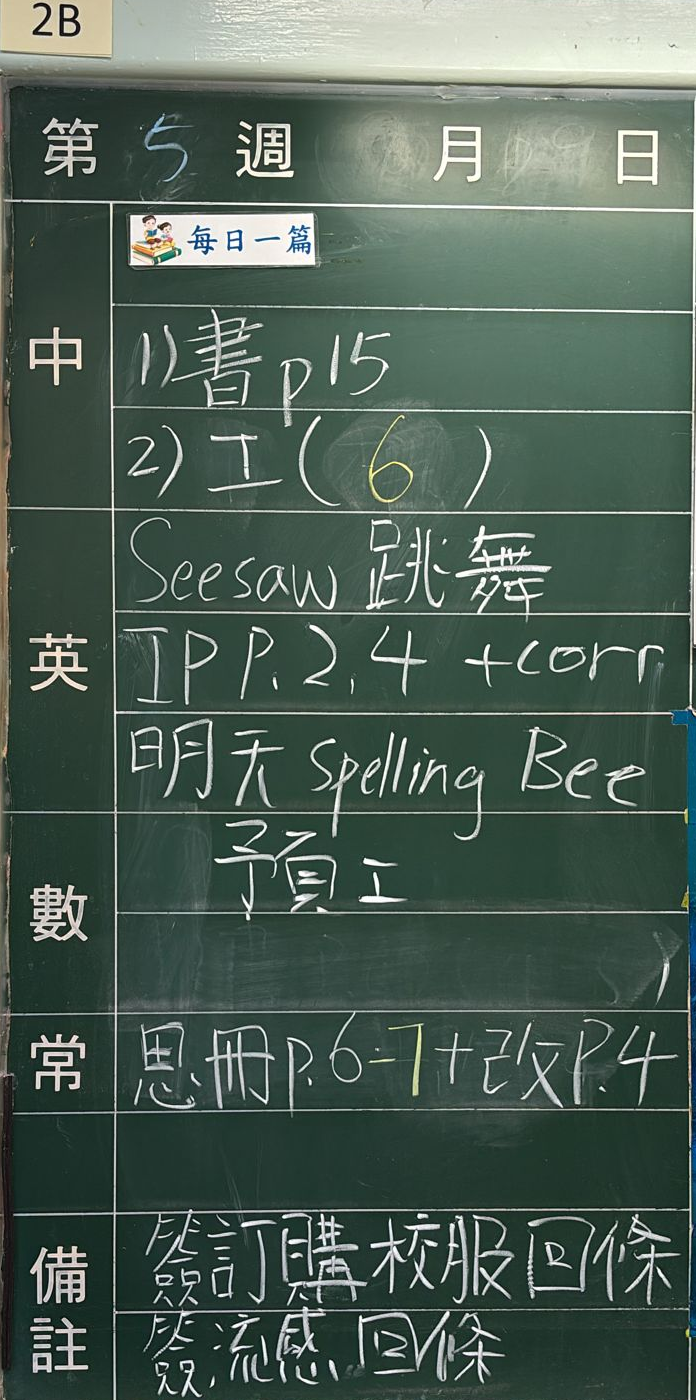 2B
第 5 週 月 日
中
每日一篇
1) 書 p15
2) 工 ( 6 )
英
Seesaw 跳舞
IP P. 2, 4 + corr
明天 Spelling Bee
數
預工
常
思冊 P. 6-7 + 改 P. 4
備註
簽訂購校服回條
簽流感回條